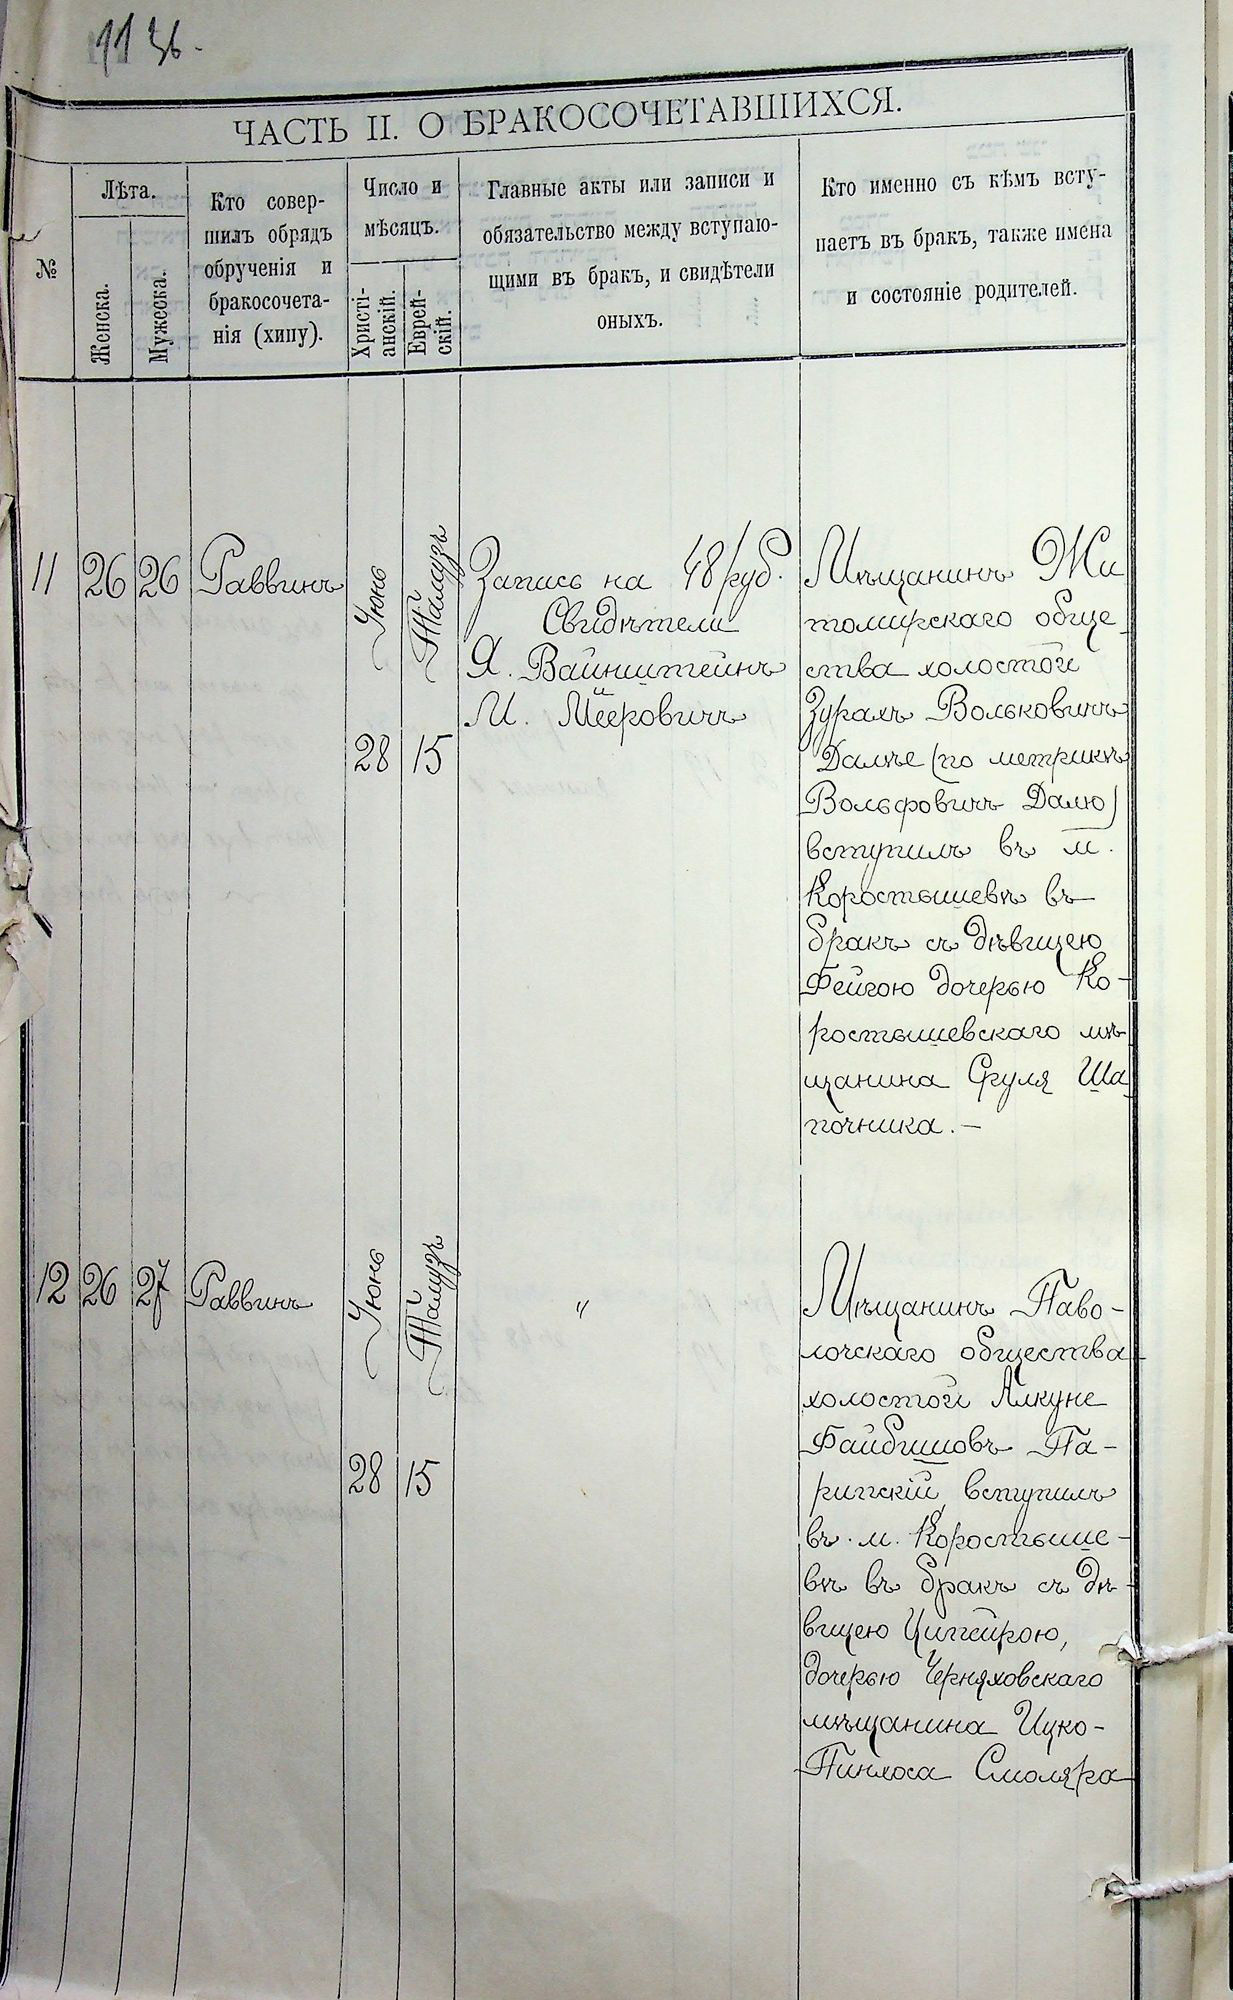 1136.
ЧАСТЬ II. О БРАКОСОЧЕТАВШИХСЯ.
№
Лѣта.
Женска.
Мужеска.
Кто совер-
шилъ обрядъ
обрученія и
бракосочета-
нія (хипу).
Число и
мѣсяцъ.
Христі-
анскій.
Еврей-
скій.
Главные акты или записи и
обязательство между вступаю-
щими въ бракъ, и свидѣтели
оныхъ.
Кто именно съ кѣмъ всту-
паетъ въ бракъ, также имена
и состояніе родителей.
11
26
26
Раввинъ
Іюнь
28
Тамузъ
15
Запись на 48 руб.
Свидѣтели
Я. Вайнштейнъ
М. Мееровичъ
Мѣщанинъ Жи
томирскаго обще_
ства холостой
Зурахъ Вольковичъ
Далѣе (по метрикѣ
Вольфовичъ Далю)
вступилъ въ м.
Коростышевѣ въ
бракъ съ дѣвицею
Фейгою дочерью Ко-
ростышевскаго мѣ
щанина Сруля Ша_
почника.—
12
26
27
Раввинъ
Іюнь
28
Тамузъ
15
"
Мѣщанинъ Паво-
лочскаго общества
холостой Алкуне
Файбишовъ Па-
рипскій вступилъ
въ м. Коростыше-
вѣ въ бракъ съ дѣ-
вицею Ципойрою,
дочерью Черняховскаго
мѣщанина Ицко-
Пинхоса Смоляра